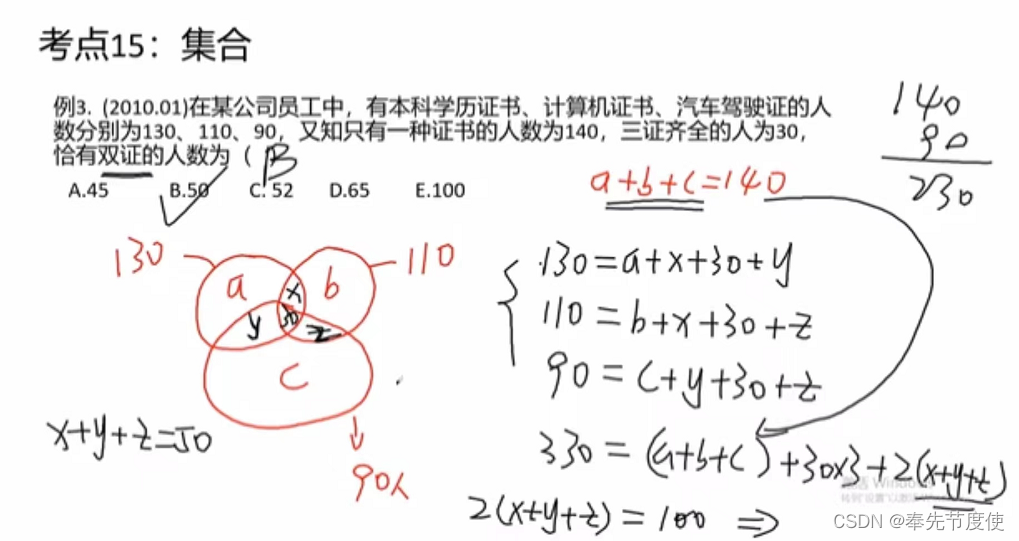 考点15：集合
例3. (2010.01)在某公司员工中，有本科学历证书、计算机证书、汽车驾驶证的人
数分别为130、110、90，又知只有一种证书的人数为140，三证齐全的人为30，
恰有双证的人数为（ B
A.45 B.50 C. 52 D.65 E.100
140
90
230
a+b+c=140
130
110
a
x
b
y
30
z
c
90人
x+y+z=50
130=a+x+30+y
110=b+x+30+z
90=c+y+30+z
330=(a+b+c)+30x3+2(x+y+z)
2(x+y+z)=100 ⇒
激活 Windows
CSDN @奉先节度使